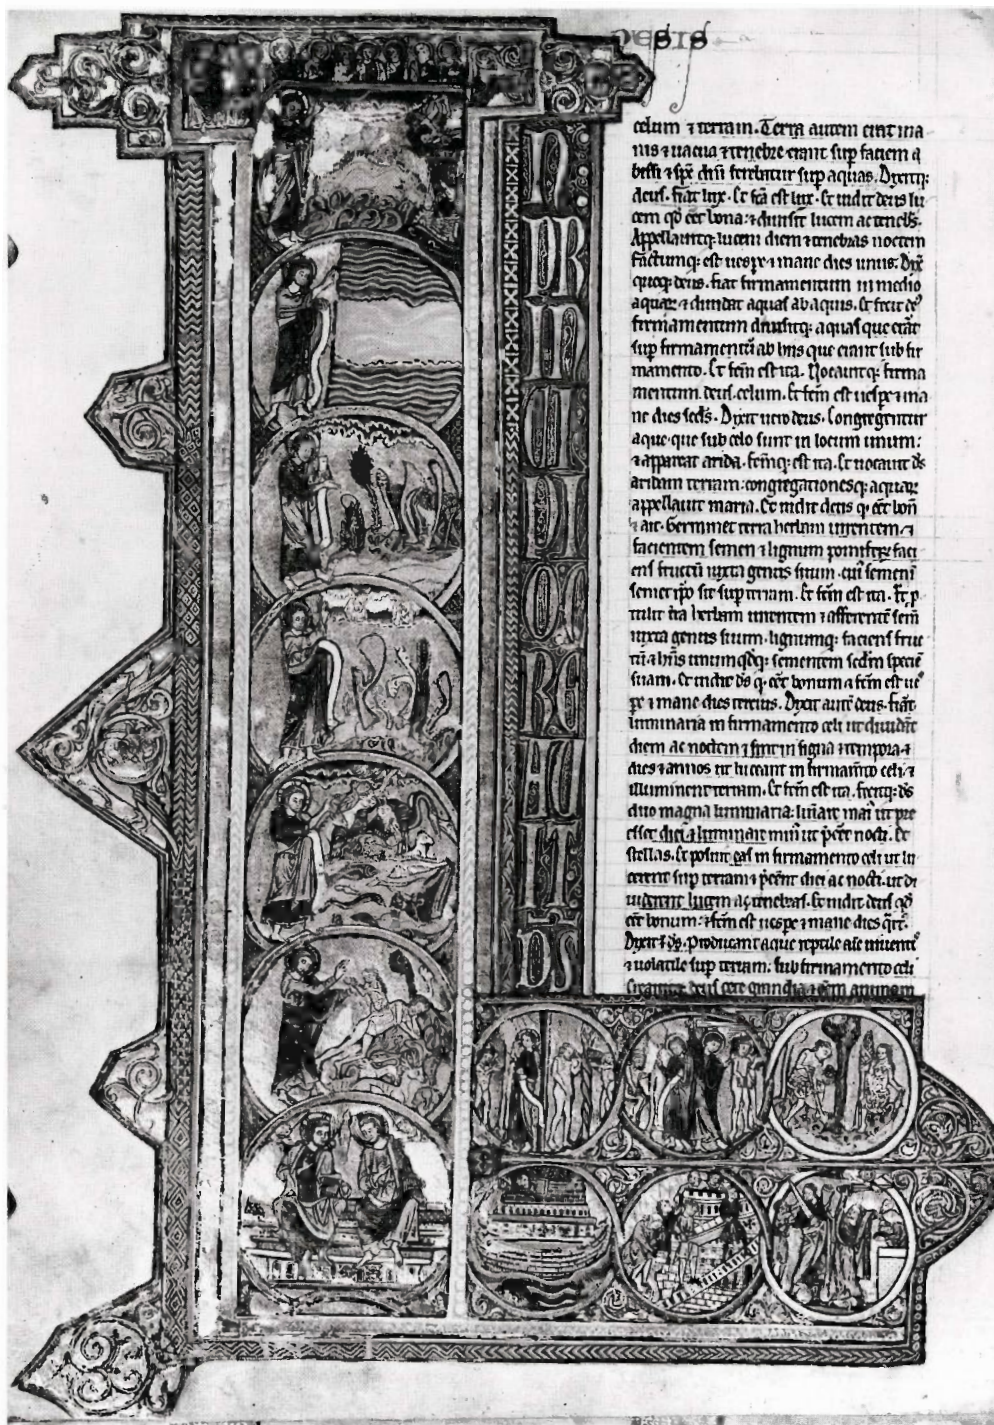 NESIS
N
PR
IN
CI
PI
OC
RE
AU
IT
DS
celum ⁊ terram. Terra autem erat ina
nis ⁊ uacua ⁊ tenebre erant sup faciem a
bissi ⁊ spc dni ferebatur sup aquas. Dixitq;
deus. fiat lux. Et fca est lux. Et uidit deus lu
cem qd eet bona: ⁊ diuisit lucem ac tenebs.
Appellauitq; lucem diem ⁊ tenebras noctem
factumq; est uespe ⁊ mane dies unus. Dix
quoq; deus. fiat firmamentum in medio
aquar ⁊ diuidat aquas ab aquis. Et fecit ds
firmamentum diuisitq; aquas que erāt
sup firmamentū ab hiis que erant sub fir
mamento. Et fcm est ita. Uocauitq; firma
mentum deus celum. Et fcm est uespe ⁊ ma
ne dies scds. Dixit uero deus. Congregentur
aque que sub celo sunt in locum unum:
⁊ appareat arida. fcmq; est ita. Et uocauit ds
aridam terram: congregationesq; aquar
appellauit maria. Et uidit deus q eet bonū
⁊ ait. Germinet terra herbam uirentem ⁊
facientem semen ⁊ lignum pomiferū faci
ens fructū iuxta genus suum. cui semen ī
semet ipo sit sup terram. Et fcm est ita. Et p
tulit tra herbam uirentem ⁊ afferentē sem
iuxta genus suum. lignumq; faciens fruc
tū ⁊ hns unumqdq; sementem scdm speciē
suam. Et uidit ds q eet bonum ⁊ fcm est ue
spe ⁊ mane dies tercius. Dixit autē deus. fiāt
luminaria in firmamento celi ut diuidāt
diem ac noctem ⁊ sint in signa ⁊ tempora ⁊
dies ⁊ annos ut luceant in firmamto celi ⁊
illuminent terram. Et fcm est ita. fecitq; ds
duo magna luminaria: luminare mai ut pre
esset diei ⁊ luminare min ut pcet nocti. Et
stellas. Et posuit eas in firmamento celi ut lu
cerent sup terram ⁊ pcent diei ac nocti. ut di
uiderent lucem ac tenebras. Et uidit deus qd
eet bonum: ⁊ fcm est uespe ⁊ mane dies qrt.
Dixit ⁊ ds. Producant aque reptile aie uiuentis
⁊ uolatile sup terram: sub firmamento celi
Creauitq; deus cete grandia ⁊ omnem animam